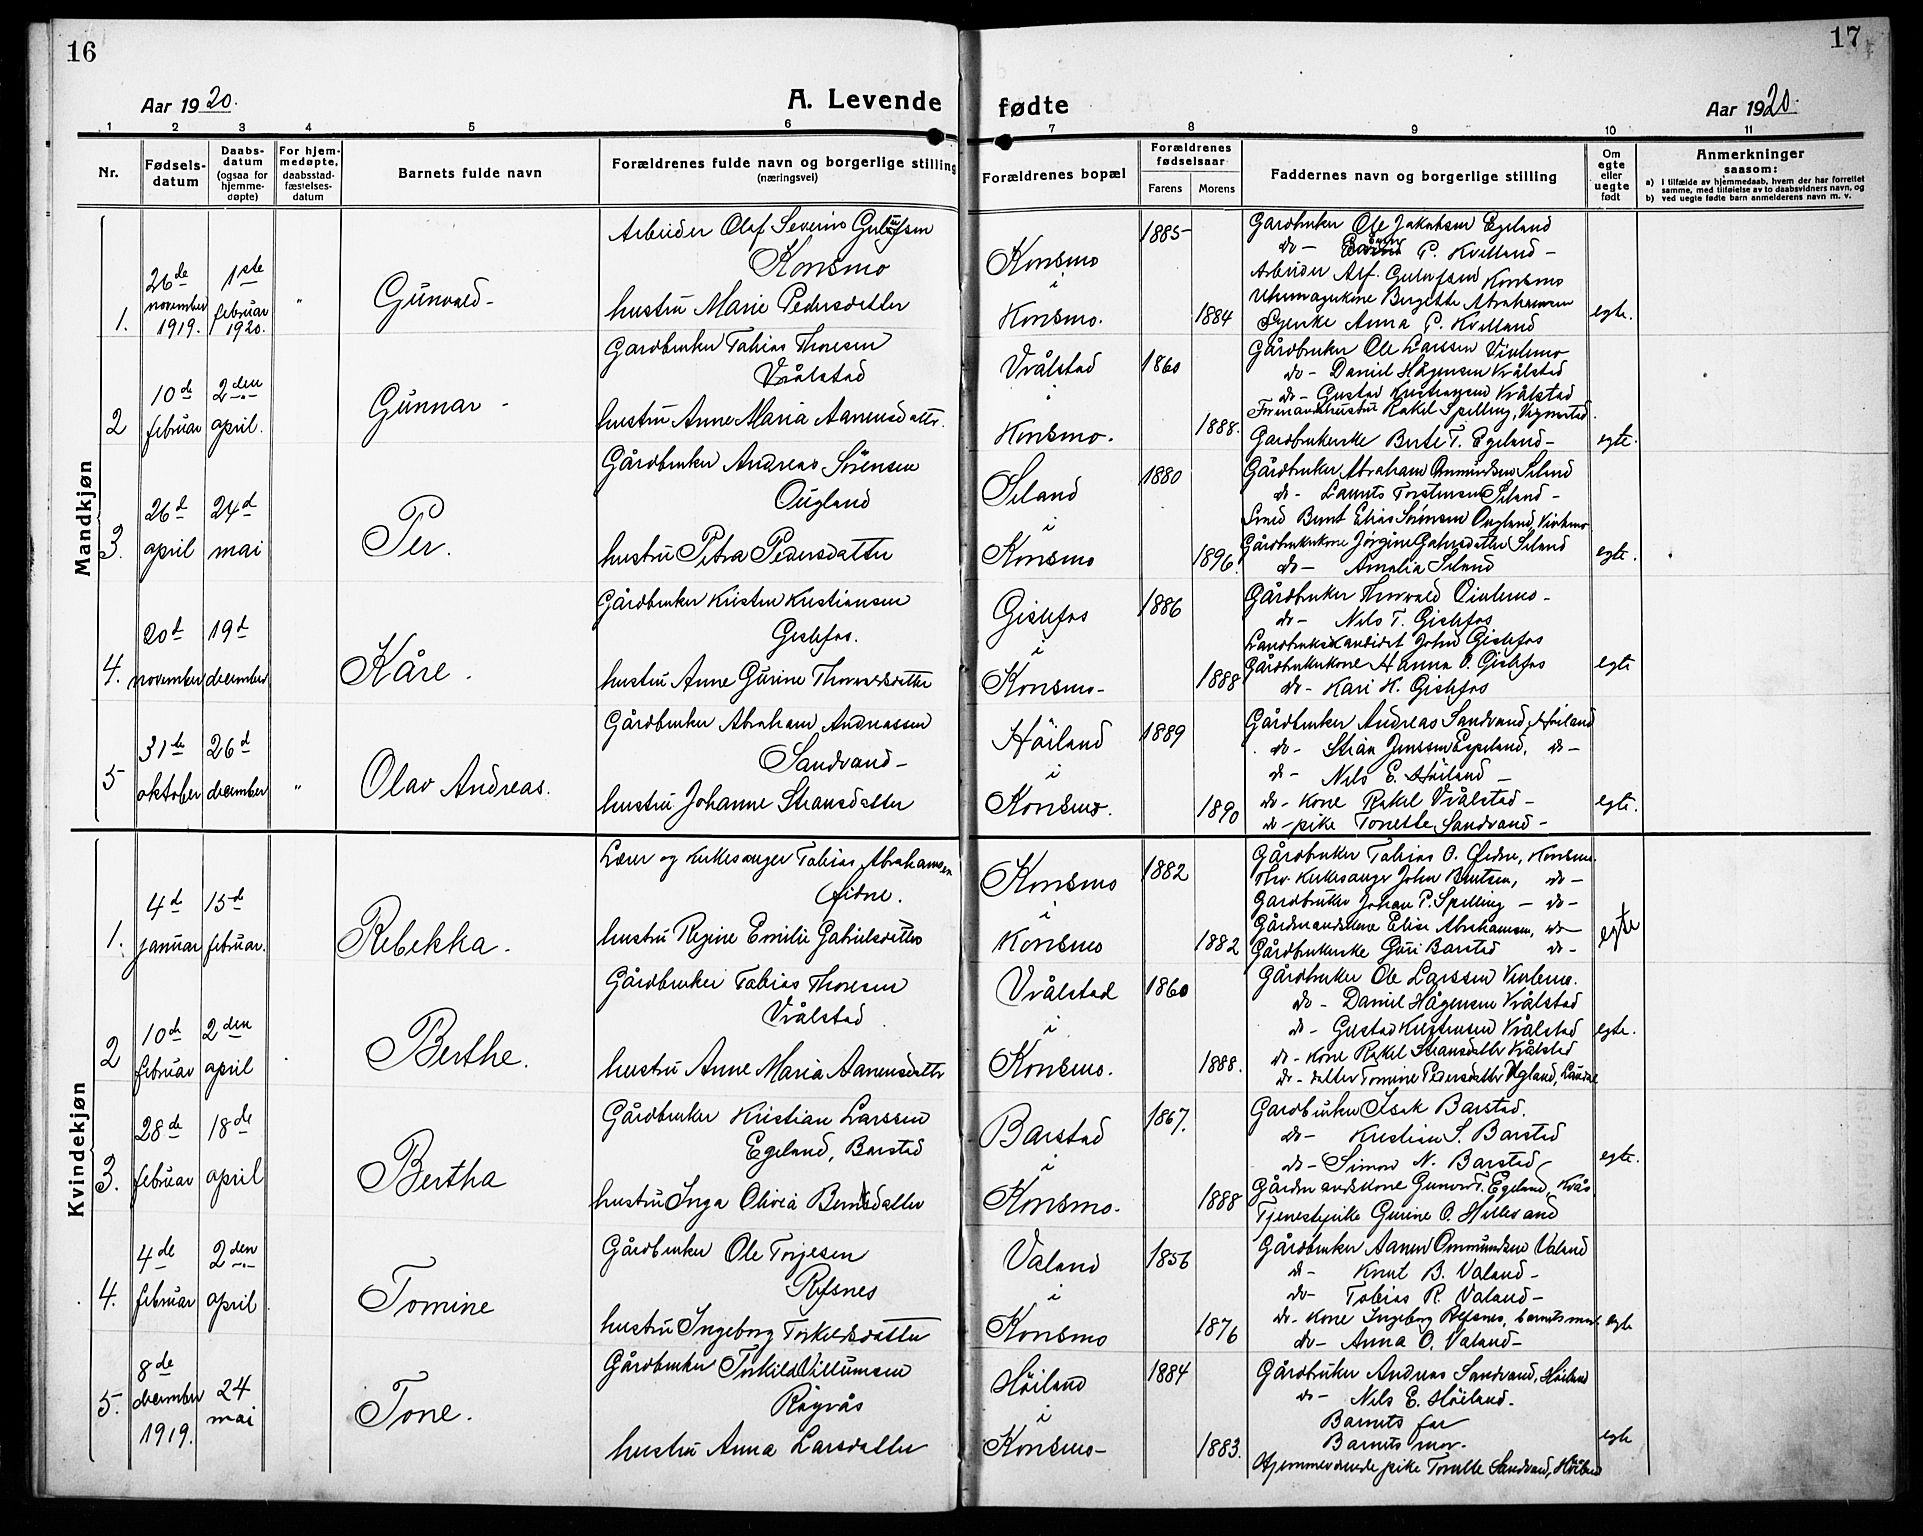 16
Aar 1920.
A. Levende
1 2 3 4 5 6
Nr.
Fødsels-
datum
Daabs-
datum
(ogsaa for
hjemme-
døpte)
For hjem-
medøpte,
daabsstad-
fæstelses-
datum
Barnets fulde navn
Forældrenes fulde navn og borgerlige stilling
(næringsvei)
Mandkjøn
1.
26de
november
1919.
1ste
februar
1920.
"
Gunvald -
Arbeider Olaf Severin
Konsmo
hustru Marie Pedersdatter
2
10de
februar
2den
april.
Gunnar -
Gardbruker Tobias Thoresen
Vrålstad
hustru Anne Maria Aanensdattr.
3.
26d
april
24d
mai
Per.
Gårdbruker Andreas Sørensen
Øugland
hustru Petra Pedersdatter
4.
20d
november
19d
december
Kåre.
Gårdbruker Kristen Kristiansen
Gislefos.
hustru Anne Gurine Thorvaldsdatter
5
31te
oktober
26d
december
"
Olav Andreas.
Gårdbruker Abraham Andreassen
Sandvand -
hustru Johanne Stransdatter
Kvindekjøn
1.
4d
januar
15de
februar.
Rebekka.
Lærer og kirkesanger Tobias Abrahamsen
Øidne.
hustru Regine Emilie Gabrielsdatter
2
10de
februar
2den
april
Berthe.
Gårdbruker Tobias Thoresen
Vrålstad
hustru Anne Maria Aanensdattr
3.
28de
februar
18de
april
Bertha
Gårdbruker Kristian Larssen
Egeland, Barstad
hustru Inga Olivia Berntsdatter
4.
4de
februar
2den
april
Tomine
Gårdbruker Ole Torjesen
Refsnes
hustru Ingeborg Torkildsdatter
5.
8de
december
1919.
24
mai
Tone.
Gårdbruker Torkild Villumsen
Røgvås
hustru Anna Larsdatter
17
fødte
Aar 1920.
7 8 9 10 11
Forældrenes bopæl
Forældrenes
fødselsaar
Farens Morens
Faddernes navn og borgerlige stilling
Om
egte
eller
uegte
født
Anmerkninger
saasom:
a) I tilfælde av hjemmedaab, hvem der har forrettet
samme, med tilføielse av to daabsvidners navn, og
b) ved uegte fødte barn anmelderens navn m. v.
Konsmo
i
Konsmo.
1885-
1884
Gardbruker Ole Jakobsen Egeland
do - P. Kvilland -
Arbeider Alf. Gulufsen Konsmo
Birgitte Abrahamsen
Syerske Anna P. Kvilland
egte.
Vrålstad
i
Konsmo.
1860
1888.
Gårdbruker Ole Larssen Viulemo
do - Daniel Hågensen Vrålstad
do - Gustad Kristensen Vrålstad
Formandshustru Rakel Spilling, Vigmostad.
Gardbrukerske Berte T. Egeland -
egte.
Seland
i
Konsmo
1880
1896.
Gårdbruker Abraham Ommundsen Seland
do - Laurits Torstensen Seland -
Smed Bernt Elias Sørensen Øugland, Viulemo
Gårdbrukerkone Jørgine Seland
do - Amalia Seland
egte.
Gislefos
i
Konsmo -
1886
1888
Gårdbruker Thorvald Viulemo -
do - Nils T. Gislefos
Landbrukskandidat John Gislefos
Gårdbrukerkone Hanna O. Gislefos
do - Kari K. Gislefos
egte
Höiland
i
Konsmo.
1889
1890
Gårdbruker Andreas Sandvand, Höiland
do - Stran Jenssen Egeland, do -
do - Nils E. Höiland -
do - kone Rakel Vrålstad -
do - pike Tonette Sandvand -
egte.
Konsmo
i
Konsmo
1882
1882
Gårdbruker Tobias O. Øidne, Konsmo.
Fhv. kirkesanger John Berntsen, do -
Gardbruker Johan P. Spilling - do -
Gårdmandskone Elise Abrahamsen, do -
Gårdbrukerske Guri Barstad do -
egte
Vrålstad
i
Konsmo.
1860
1888.
Gårdbruker Ole Larssen Viulemo.
do - Daniel Hågensen Vrålstad
do - Gustad Kristensen Vrålstad
do - kone Rakel Stransdatter Vrålstad
do - datter Tomine Pedersdatter Ugland, Laudal
egte.
Barstad
i
Konsmo.
1867.
1888
Gardbruker Isak Barstad.
do - Kristian S. Barstad
do - Simon N. Barstad
Gårdmandskone Gunvor T. Egeland, Kvås
Tjenestepike Gurine O. Hillesand
egte.
Valand
i
Konsmo
1856
1876
Gårdbruker Aanen Ommundsen Valand
do - Knut B. Valand -
do - Tobias R. Valand -
do - kone Ingeborg Refsnes, barnets mor.
do - Anna O. Valand -
egte
Höiland
i
Konsmo -
1884
1883.
Gårdbruker Andreas Sandvand, Höiland
do - Nils E. Höiland.
Barnets far
Barnets mor.
Hjemmeværende pike Tonette Sandvand, Höiland
egte